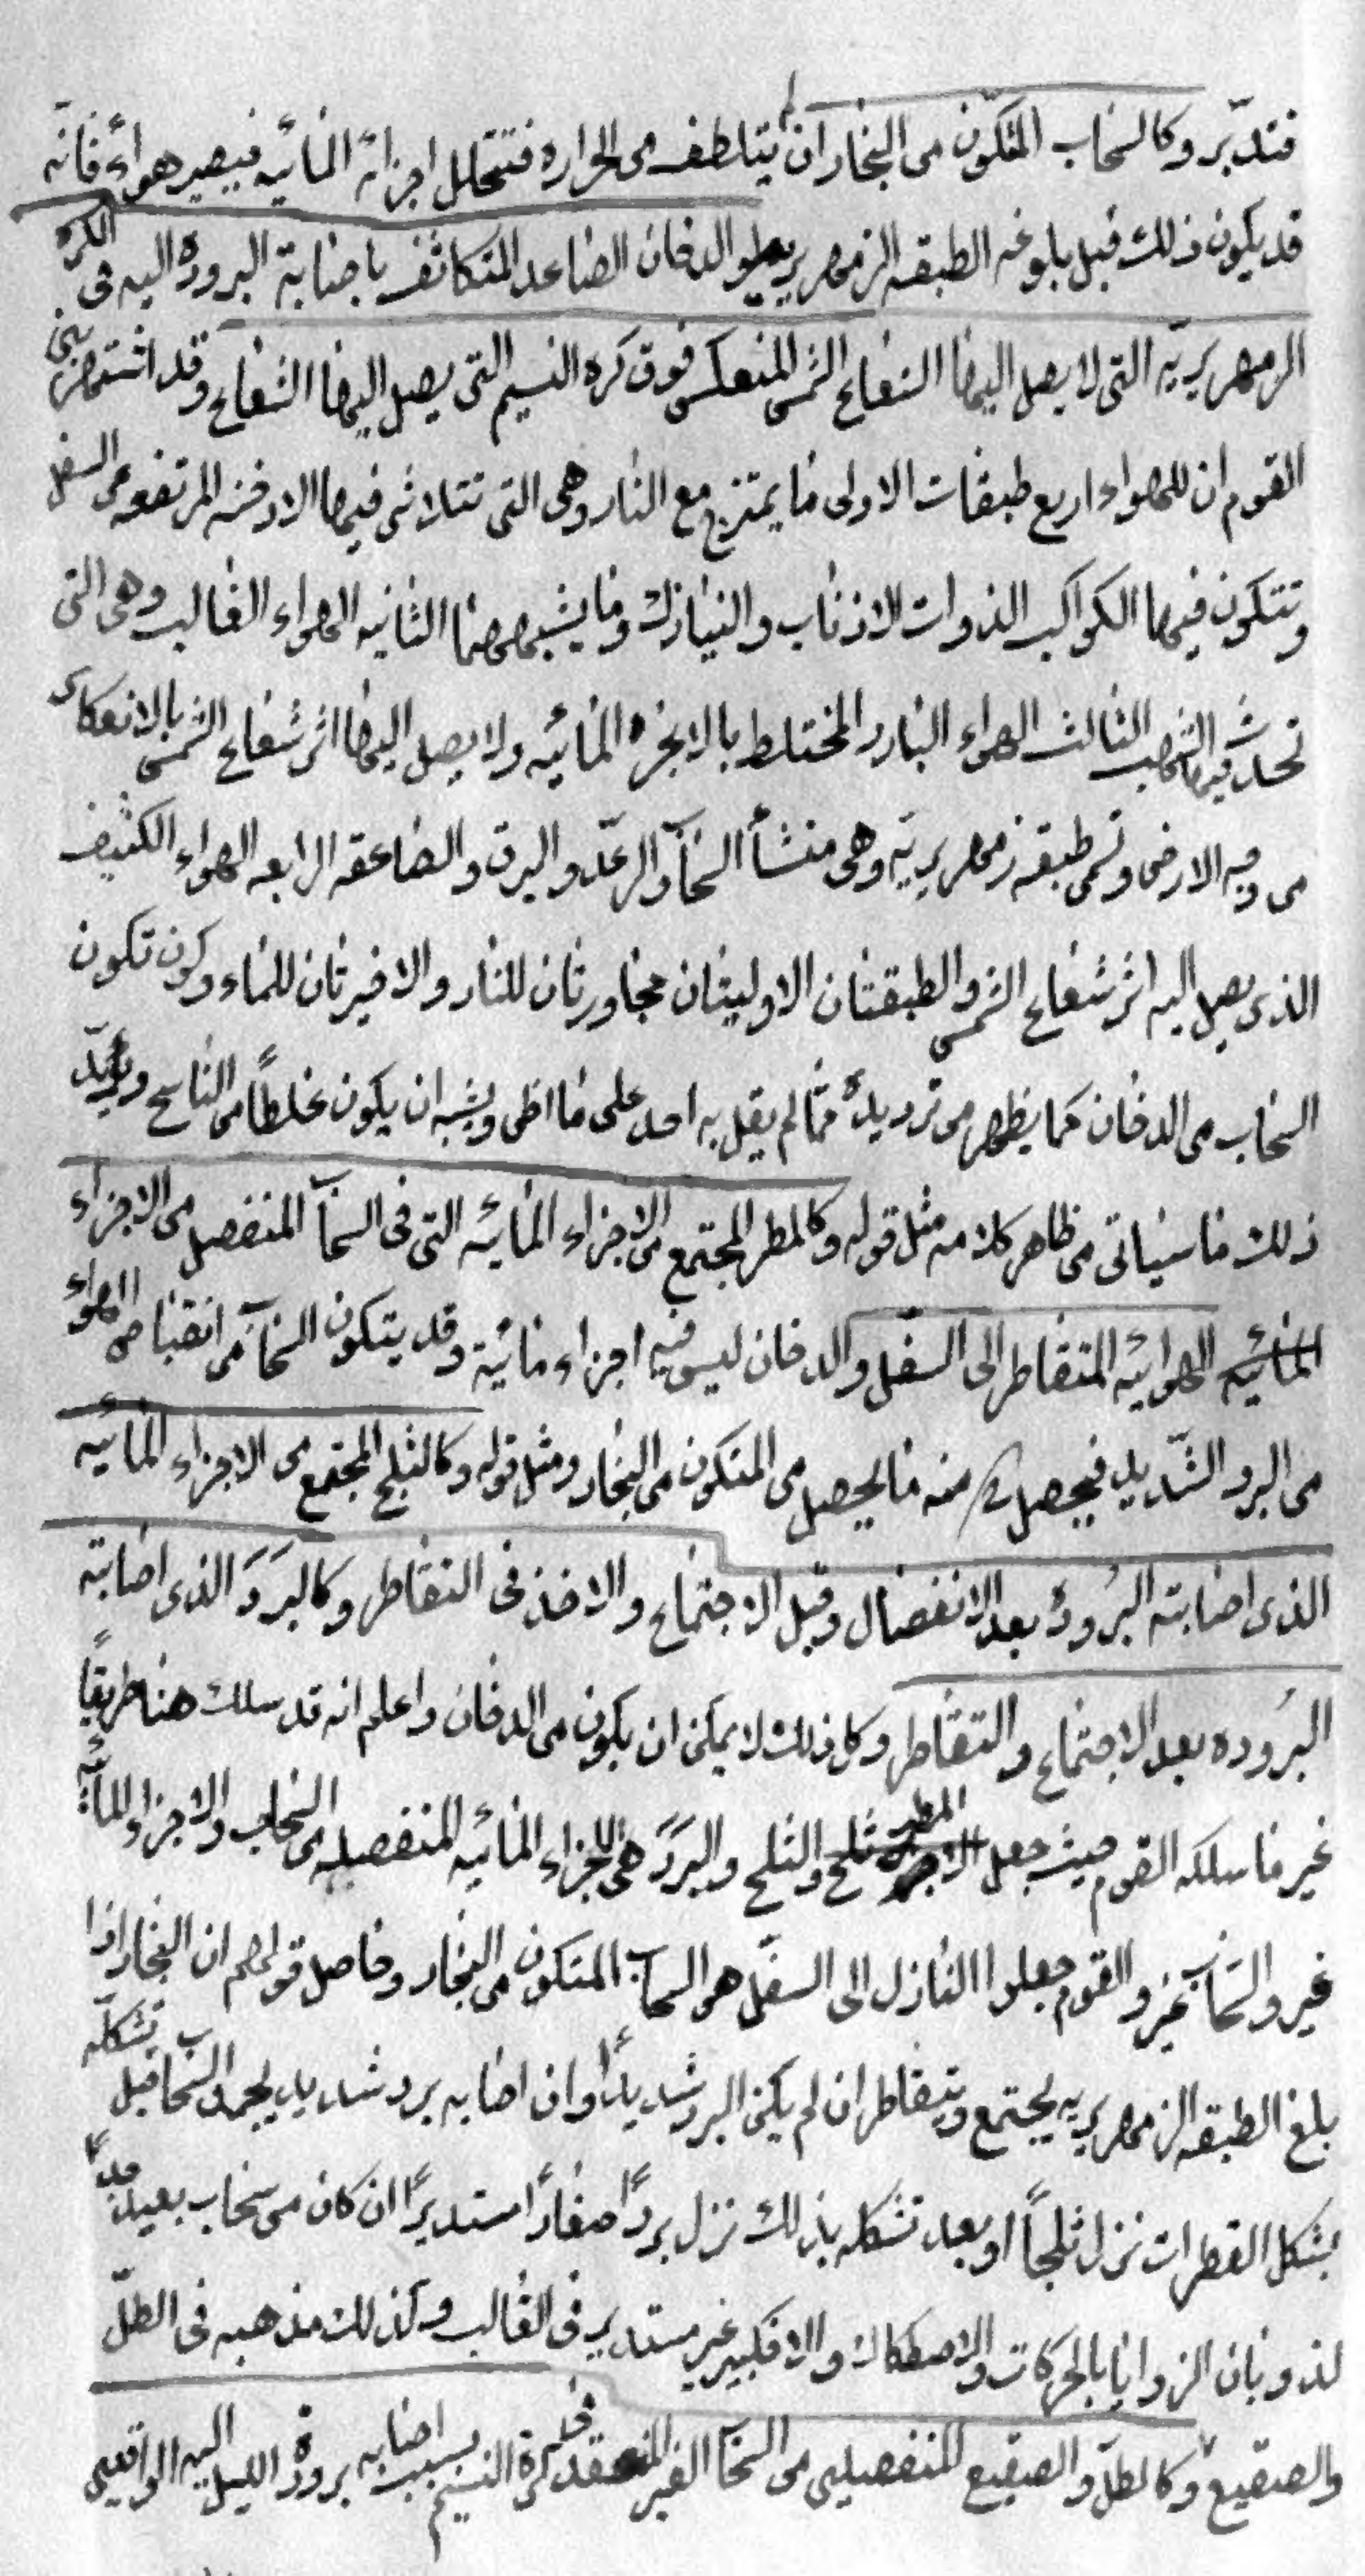 فتدبّر وكالسحاب المتكوّن من البخار ان لم يتلطف من الحراره فتتحلل اجزائه المائيه فيصير هواءً فانّه
قد يكون ذلك قبل بلوغه الطبقه الزمهريريه او الدخان الصاعد المتكاثف باصابة البروده اليه فى الكره
الزمهريريّه التى لا يصل اليها الشعاع الشمسى المنعكس فوق كره النسيم التى يصل اليها الشعاع وقد اشتهر بين
القوم ان للهواء اربع طبقات الاولى ما يمتزج مع النار وهى التى تتلاشى فيها الادخنه المرتفعه من السفل
وتتكون فيها الكواكب الذوات الاذناب والنيازك وما يشبههما الثانيه الهواء الغالب وهى التى
تحدث فيها الشهب الثالث الهواء البارد المختلط بالابخره المائيه ولا يصل اليها اثر شعاع الشمس بالانعكاس
من وجه الارض وتسمى طبقه زمهريريّه وهى منشأ السحاب والرعد والبرق والصاعقه الرابعه الهواء الكثيف
الذى يصل اليه اثر شعاع الشمس والطبقتان الاوليتان مجاورتان للنار والاخيرتان للماء وكون تكون
السحاب من الدخان كما يظهر من ترديده ممّا لم يقل به احد على ما اظن ويشبه ان يكون غلطاً من الناسخ ويؤيّد
ذلك ما سياتى من ظاهر كلامه مثل قوله وكالمطر المجتمع من الاجزاء المائيه التى فى السحاب المنفصل من الاجزاء
المائيه الهوائيه المتقاطر الى السفل والدخان ليس فيه اجزاء مائيّة وقد يتكون السحاب من انقباض الهواء
من البرد الشّديد فيحصل منه ما يحصل من المتكون من البخار ومثل قوله وكالثلج المجتمع من الاجزاء المائيه
الذى اصابته البُرودة بعد الانفصال وقبل الاجتماع والاخذ فى التقاطر وكالبَرَد الذى اصابته
البُروده بعد الاجتماع والتقاطر وكل ذلك لا يمكن ان يكون من الدخان واعلم انه قد سلك هنا طريقاً
غير ما سلكه القوم حيث جعل المطر والثلج والبَرَدَ هى الاجزاء المائيه المنفصله من السحاب والاجزاء المائيّه
غير والسّحاب غير والقوم جعلوا النازل الى السفل هو السحاب المتكون من البخار وحاصل قولهم ان البخار اذا
بلغ الطبقه الزمهريريه يجتمع ويتقاطر ان لم يكن البرد شديداً وان اصابه برد شديد يجمد السحاب قبل تشكله
بشكل القطرات نزل ثلجاً او بعد تشكله بذلك نزل برداً صغاراً مستديراً ان كان من سحاب بعيد جداً
لذوبان الزوايا بالحركات والاصطكاك والا فكبير غير مستدير فى الغالب وكذلك مذهبه فى الطلّ
والصقيع وكالطلّ والصقيع المنفصلين من السحاب الغير المنعقد فى كرة النسيم بسبب اصابه برودة الليل اليه الواقعين